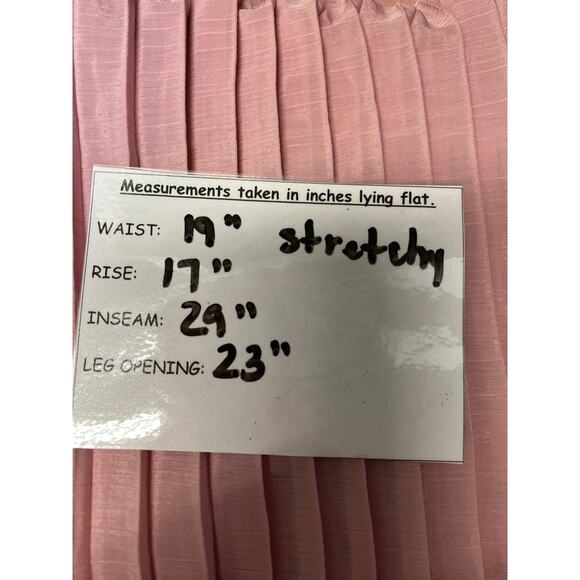 Measurements taken in inches lying flat.
WAIST: 19" stretchy
RISE: 17"
INSEAM: 29"
LEG OPENING: 23"